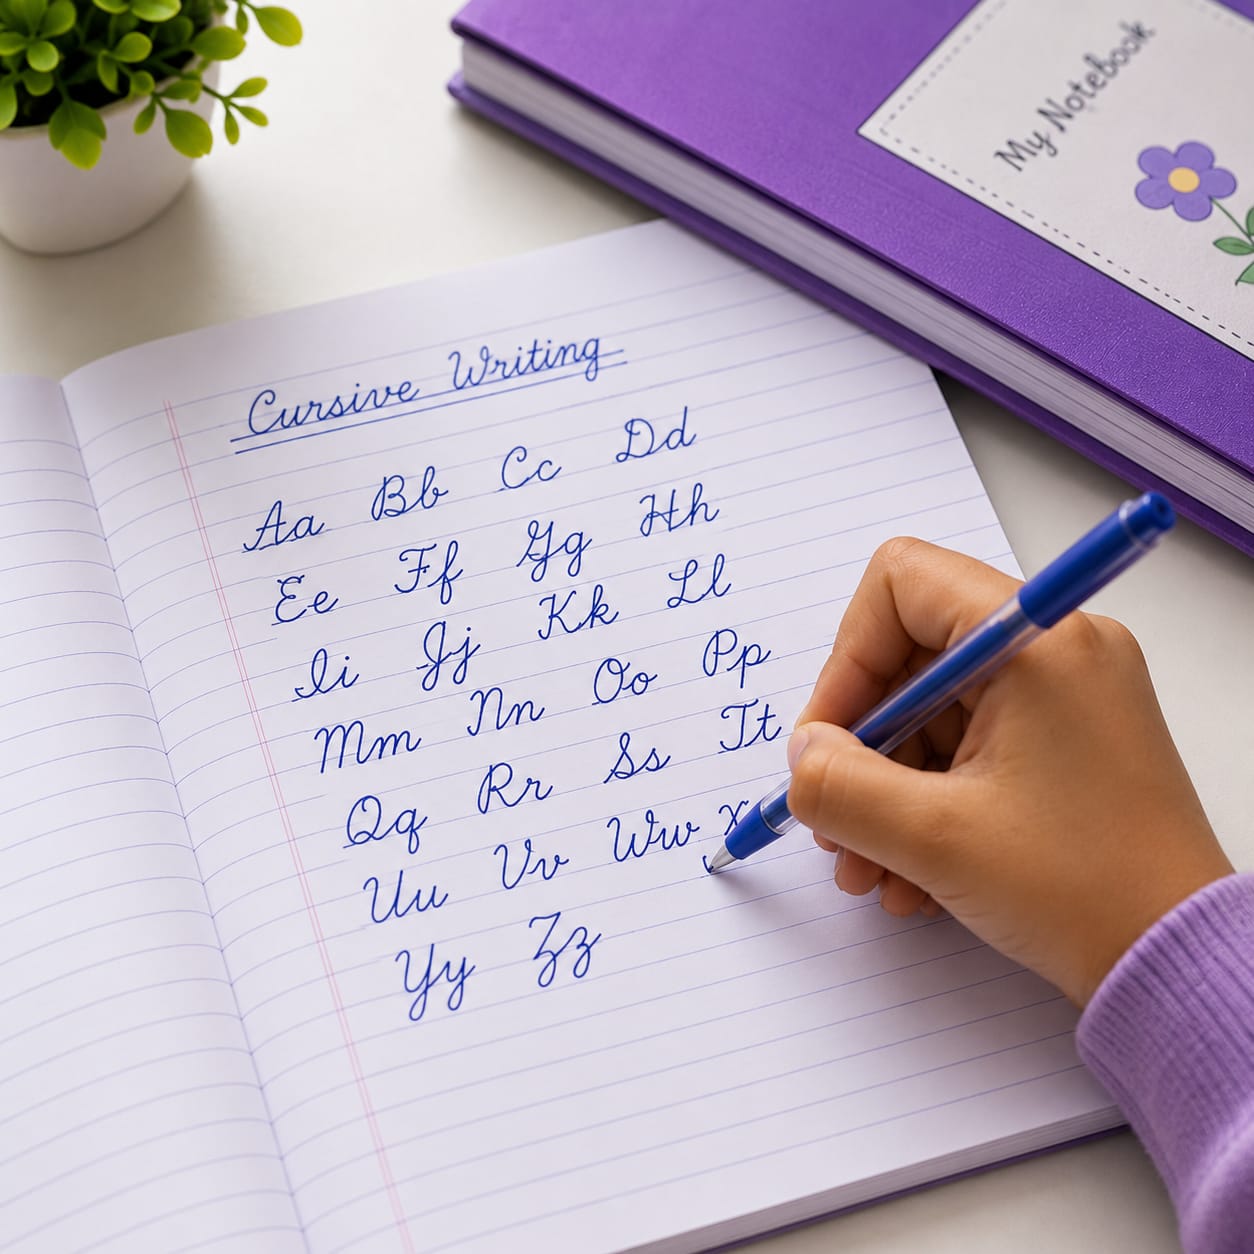 My Notebook
Cursive Writing
Aa Bb Cc Dd
Ee Ff Gg Hh
Ii Jj Kk Ll
Mm Nn Oo Pp
Qq Rr Ss Tt
Uu Vv Ww x
Yy Zz